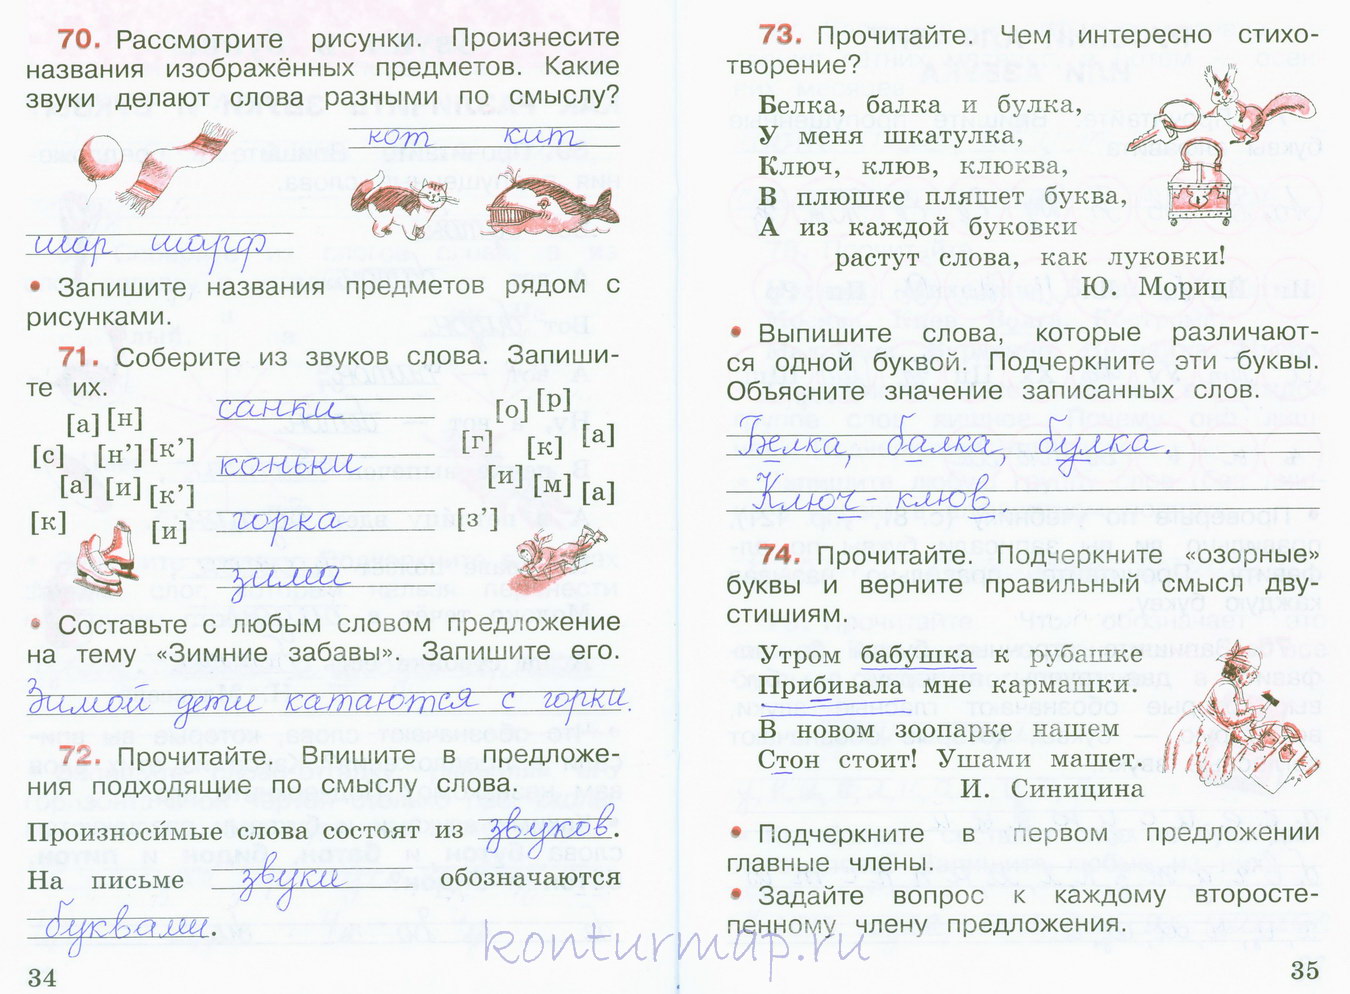 70. Рассмотрите рисунки. Произнесите
названия изображённых предметов. Какие
звуки делают слова разными по смыслу?
кот кит
шар шарф
• Запишите названия предметов рядом с
рисунками.
71. Соберите из звуков слова. Запиши-
те их.
[а] [н]
[с] [н’] [к’]
[а] [и] [к’]
[к] [и]
санки
коньки
горка
зима
[о] [р]
[г] [к] [а]
[и] [м] [а]
[з’]
• Составьте с любым словом предложение
на тему «Зимние забавы». Запишите его.
Зимой дети катаются с горки.
72. Прочитайте. Впишите в предложе-
ния подходящие по смыслу слова.
Произноси́мые слова состоят из звуков.
На письме звуки обозначаются
буквами.
34
73. Прочитайте. Чем интересно стихо-
творение?
Белка, балка и булка,
У меня шкатулка,
Ключ, клюв, клюква,
В плюшке пляшет буква,
А из каждой буковки
растут слова, как луковки!
Ю. Мориц
• Выпишите слова, которые различают-
ся одной буквой. Подчеркните эти буквы.
Объясните значение записанных слов.
Белка, балка, булка.
Ключ - клюв.
74. Прочитайте. Подчеркните «озорные»
буквы и верните правильный смысл дву-
стишиям.
Утром бабушка к рубашке
Прибивала мне кармашки.
В новом зоопарке нашем
Стон стоит! Ушами машет.
И. Синицина
• Подчеркните в первом предложении
главные члены.
• Задайте вопрос к каждому второсте-
пенному члену предложения.
35
konturmap.ru